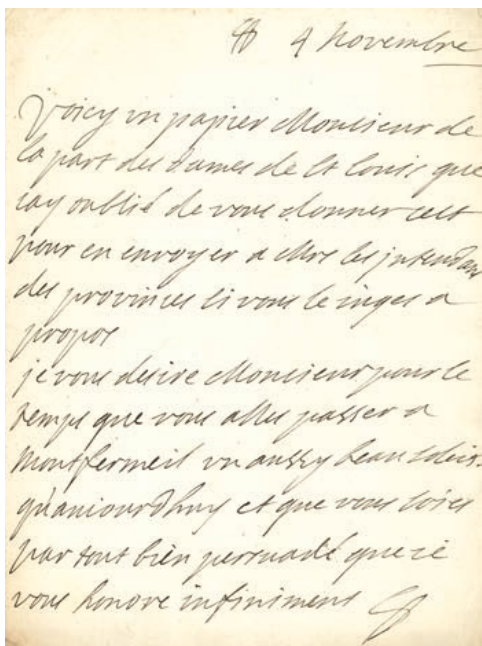 4 novembre
Voicy un papier Monsieur de
la part des dames de St Louis que
iay oublié de vous donner cest
pour en envoyer a Mrs les jntendans
des provinces si vous le iuges a
propos
je vous desire Monsieur pour le
temps que vous alles passer a
montfermeil un aussy beau soleil
qu'auiourdhuy et que vous soies
par tout bien persuadé que ie
vous honore infiniment